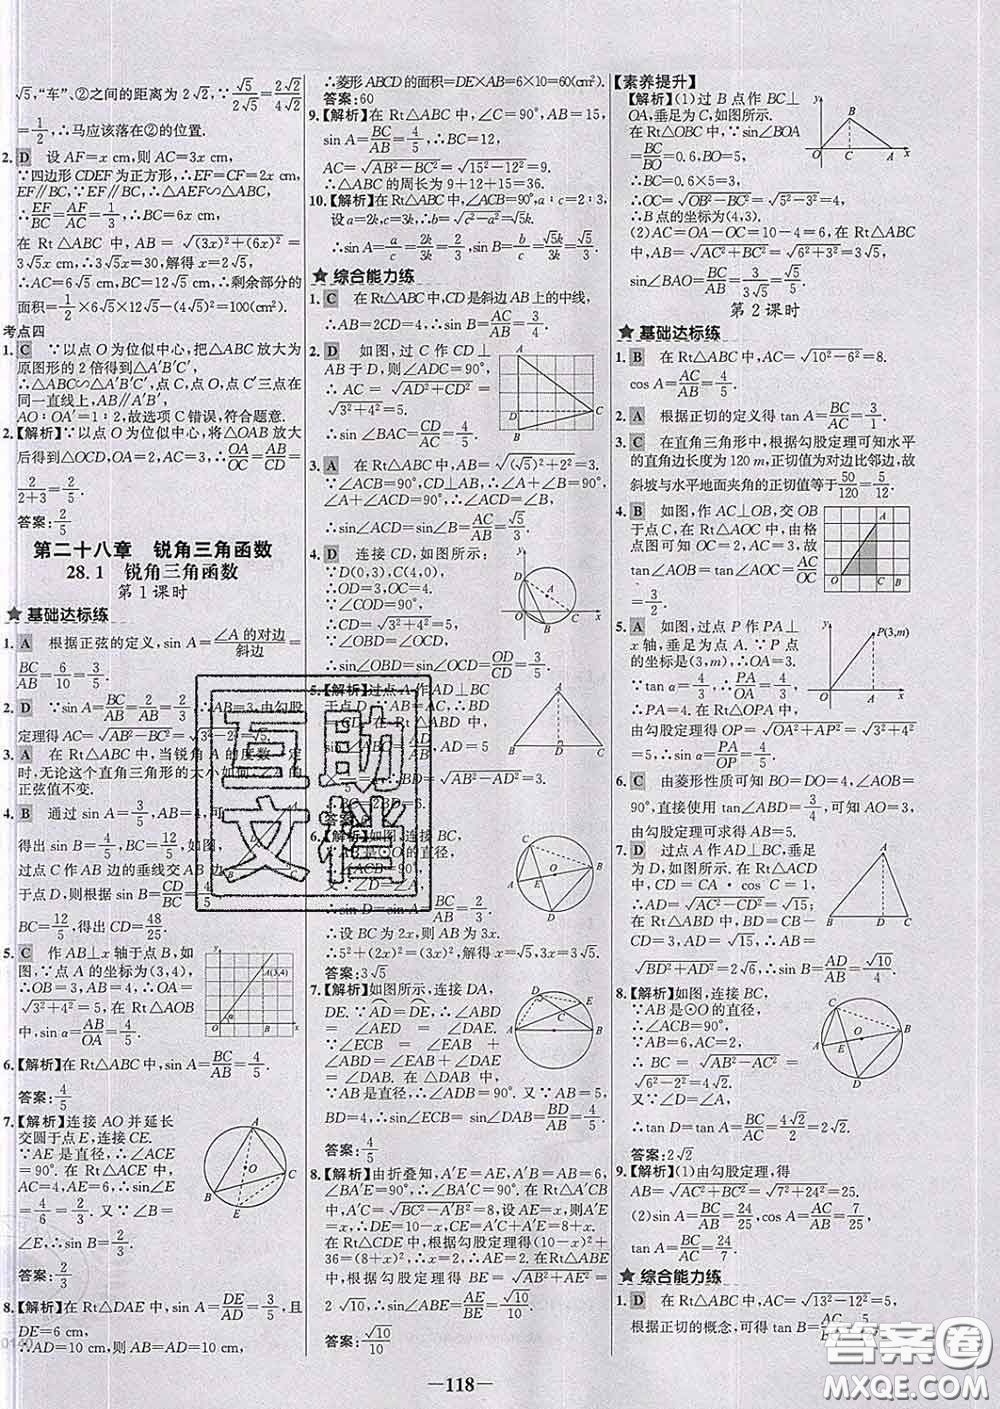 √5,“车”、②之间的距离为2√2,∵√5/(2√5)=2√2/(4√2)
=1/2,∴马应该落在②的位置.
2. D 设AF=x cm,则AC=3x cm,
∵四边形CDEF为正方形,∴EF=CF=2x cm,
EF∥BC,∵EF∥BC,∴△AEF∽△ABC,
∴EF/BC=AF/AC=1/3,∴BC=6x cm,
在Rt△ABC中,AB=√((3x)²+(6x)²)=
3√5x cm,∴3√5x=30,解得x=2√5,
∴AC=6√5 cm,BC=12√5 cm,∴剩余部分的
面积=1/2×6√5×12√5-(4√5)²=100(cm²).
考点四
1. C ∵以点O为位似中心,把△ABC放大为
原图形的2倍得到△A′B′C′,
∴△ABC∽△A′B′C′,点C,点O,点C′三点在
同一直线上,AB∥A′B′,
AO∶OA′=1∶2,故选项C错误,符合题意.
2.【解析】∵以点O为位似中心,将△OAB放大
后得到△OCD,OA=2,AC=3,∴OA/OC=AB/CD=
2/(2+3)=2/5.
答案:2/5
第二十八章 锐角三角函数
28.1 锐角三角函数
第1课时
★基础达标练
1. A 根据正弦的定义,sin A=∠A的对边/斜边=
BC/AB=6/10=3/5.
2. D ∵sin A=BC/AB=2/3=2/AB,∴AB=3,由勾股
定理得AC=√(AB²-BC²)=√(3²-2²)=√5.
3. A 在Rt△ABC中,当锐角A的度数一定
时,无论这个直角三角形的大小如何,∠A的
正弦值不变.
4. B 通过sin A=3/5,AB=4,可
得出sin B=4/5,BC=12/5,如图,
过点C作AB边的垂线交AB边
于点D,则根据sin B=CD/BC=4/5
,BC=12/5,得出CD=48/25.
5. C 作AB⊥x轴于点B,如
图,∵点A的坐标为(3,4),
∴OB=3,AB=4,∴OA=
√(3²+4²)=5,在Rt△AOB
中,sin α=AB/OA=4/5.
A(3,4)
6.【解析】在Rt△ABC中,sin A=BC/AB=4/5.
答案:4/5
7.【解析】连接AO并延长
交圆于点E,连接CE.
∵AE是直径,∴∠ACE
=90°.在Rt△ACE中,
AC=4,AE=6,∴sin E=
4/6=2/3.又∵∠B=
∠E,∴sin B=2/3.
答案:2/3
8.【解析】在Rt△DAE中,sin A=DE/AD=3/5,且
DE=6 cm,
∴AD=10 cm,∴AB=AD=10 cm,
∴菱形ABCD的面积=DE×AB=6×10=60(cm²).
答案:60
9.【解析】在Rt△ABC中,∠C=90°,AB=15,
sin A=BC/AB=4/5,∴BC=12,
AC=√(AB²-BC²)=√(15²-12²)=9.
∴△ABC的周长为9+12+15=36.
10.【解析】在Rt△ABC中,∠ACB=90°,a∶c=2∶3,
设a=2k,c=3k,∴b=√(c²-a²)=√5k.
∴sin A=a/c=2k/3k=2/3,sin B=b/c=√5k/3k=√5/3.
★综合能力练
1. C 在Rt△ABC中,CD是斜边AB上的中线,
∴AB=2CD=4,∴sin B=AC/AB=3/4.
2. D 如图,过C作CD⊥
AB于D,则∠ADC=90°,
∴AC=√(AD²+CD²)=
√(3²+4²)=5.
∴sin∠BAC=CD/AC=4/5.
3. A 在Rt△ABC中,AB=√((√5)²+2²)=3.
∵∠ACB=90°,CD⊥AB,∴∠A+∠B=90°,
∠A+∠ACD=90°,∴∠ACD=∠B,
∴sin∠ACD=sin∠B=AC/AB=√5/3.
4. D 连接CD,如图所示:
∵D(0,3),C(4,0),
∴OD=3,OC=4.
∵∠COD=90°,
∴CD=√(3²+4²)=5.
∵∠OBD=∠OCD,
∴sin∠OBD=sin∠OCD=OD/CD=3/5.
5.【解析】过点A作AD⊥BC
6.【解析】如图,连接BC,
∵AB是⊙O的直径,
∴sin D=sin A=2/3.
∴设BC为2x,则AB=3x.
∴5²+(2x)²=(3x)²,解得x=√5,3x=3√5.
答案:3√5
7.【解析】如图所示,连接DA,
DE.∵AD=DE,∴∠ABD
=∠AED=∠DAE.
∵∠ECB=∠EAB+
∠ABD=∠EAB+∠DAE
=∠DAB.在△DAB中,
∵AB是直径,∴∠ADB=90°.又∵AB=5,
BD=4,∴sin∠ECB=sin∠DAB=BD/AB=4/5.
答案:4/5
8.【解析】由折叠知,A′E=AE,A′B=AB=6,
∠BA′E=90°,∴∠BA′C=90°.在Rt△A′CB
中,A′C=√(BC²-A′B²)=8,设AE=x,则A′E=
x,∴DE=10-x,CE=A′C+A′E=8+x.
在Rt△CDE中,根据勾股定理得(10-x)²+
36=(8+x)²,∴x=2,∴AE=2.在Rt△ABE
中,根据勾股定理得BE=√(AB²+AE²)=
2√10,∴sin∠ABE=AE/BE=√10/10.
答案:√10/10
—118—
【素养提升】
【解析】(1)过B点作BC⊥
OA,垂足为C,如图所示.
在Rt△OBC中,∵sin∠BOA
=BC/BO=0.6,BO=5,
∴BC=0.6×5=3,
∴OC=√(OB²-BC²)=√(5²-3²)=4,
∴B点的坐标为(4,3).
(2)AC=OA-OC=10-4=6,在Rt△ABC
中,AB=√(AC²+BC²)=√(6²+3²)=3√5,
sin∠BAO=BC/AB=3/(3√5)=√5/5.
第2课时
★基础达标练
1. B 在Rt△ABC中,AC=√(10²-6²)=8.
cos A=AC/AB=4/5.
2. A 根据正切的定义得tan A=BC/AC=3/1.
3. C 在直角三角形中,根据勾股定理可知水平
的直角边长度为120 m,正切值为对边比邻边,故
斜坡与水平地面夹角的正切值等于50/120=5/12.
4. B 如图,作AC⊥OB,交OB
于点C,在Rt△AOC中,由格
点图可知OC=2,AC=3,故
tan∠AOB=tan∠AOC=AC/OC=
3/2.
5. A 如图,过点P作PA⊥
x轴,垂足为点A.∵P点
的坐标是(3,m),∴OA=3.
∵tan α=4/3,∴PA/OA=4/3,
∴PA=4.在Rt△OPA中,
由勾股定理得OP=√(OA²+PA²)=√(3²+4²)
=5,∴sin α=PA/OP=4/5.
P(3,m)
6. C 由菱形性质可知BO=DO=4,∠AOB=
90°,直接使用正切tan∠ABD=3/4,可知AO=3,
由勾股定理可求得AB=5.
7. D 过点A作AD⊥BC,垂足
为D.如图所示.在Rt△ACD
中,CD=CA·cos C=1,
∴AD=√(AC²-CD²)=√15;
在Rt△ABD中,BD=CB-CD
=3,AD=√15,∴AB=
√(BD²+AD²)=2√6,∴sin B=AD/AB=√10/4.
8.【解析】如图,连接BC,
∵AB是⊙O的直径,
∴∠ACB=90°.
∵AB=6,AC=2,
∴BC=√(AB²-AC²)=
√(6²-2²)=4√2.
又∵∠D=∠A,
∴tan D=tan A=BC/AC=4√2/2=2√2.
答案:2√2
9.【解析】(1)由勾股定理,得
AB=√(AC²+BC²)=√(7²+24²)=25.
(2)sin A=BC/AB=24/25,cos A=AC/AB=7/25,
tan A=BC/AC=24/7.
★综合能力练
1. D 在Rt△ABC中,AC=√(13²-12²)=5,
根据正切的概念,可得tan B=AC/BC=5/12.
互助文档
答案圈
MXQE.COM